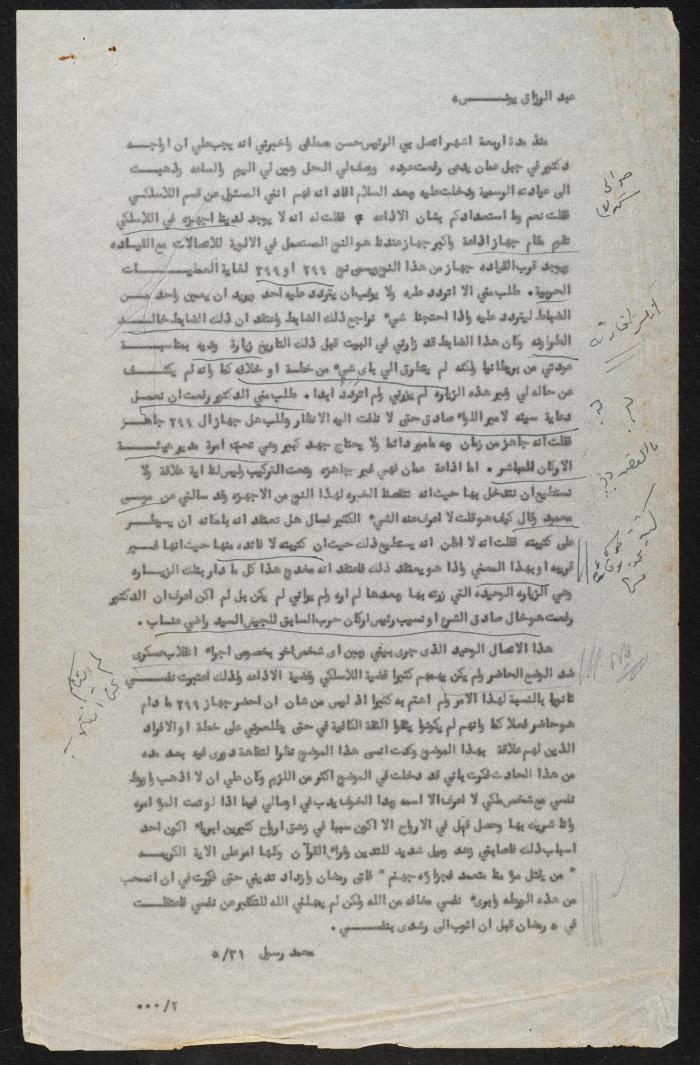 عبد الرزاق يونس٠
منذ مدة اربعة اشهر اتصل بي الرئيس حسن مصطفى واخبرني انه يجب علي ان اراجع
دكتور في جبل عمان يدعى رفعت عوده ووصف لي المحل وعين لي اليوم والساعه وذهبت
الى عيادته الرسمية ودخلت عليه وبعد السلام افاد انه فهم انني المسئول عن قسم اللاسلكي
فقلت نعم وما استعدادكم بشان الاذاعه فقلت له انه لا يوجد لدينا اجهزه في اللاسلكي
تقوم مقام جهاز اذاعة واكبر جهاز عندنا هو النوع المستعمل في الالوية للاتصالات مع القياده
ويوجد قرب القياده جهاز من هذا النوع ويسمى نوع ٢٩٩ او ٣٩٩ لغاية العطيات
الحربية ٠ طلب مني الا اتردد عليه ولا يرغب ان يتردد عليه احد ويريد ان يعين واحد من
الضباط ليتردد عليه واذا احتجنا شيء نراجع ذلك الضابط واعتقد ان ذلك الضابط خالد
الطراونه وكان هذا الضابط قد زارني في البيت قبل ذلك التاريخ زيارة وديه بمناسبة
عودتي من بريطانيا ولكنه لم يتطرق الي باي شيء من خطة او خلافه كما وانه لم يكشف
عن حاله لي وغير هذه الزياره لم يزرني ولم اتردد ابدا ٠ طلب مني الدكتور رفعت ان نعمل
دعاية سيئه لامير اللواء صادق حتى لا نلفت اليه الانظار وطلب هل جهاز ال ٢٩٩ جاهز
فقلت انه جاهز من زمان وبه مامور دائما ولا يحتاج جهد كبير وهي تحت امرة مدير هيئة
الاركان المباشر ٠ اما اذاعة عمان فهي غير جاهزه وتحت التركيب وليس لنا اية علاقة ولا
نستطيع ان نتدخل بها حيث انه تنقصنا الخبره لهذا النوع من الاجهزه وقد سالني عن موسى
محمود وقال كيف هو قلت لا اعرف عنه الشيء الكثير فسال هل تعتقد انه بامكانه ان يسيطر
على كتيبته فقلت انه لا اظن انه يستطيع ذلك حيث ان كتيبته لا فائده منها حيث انها غير
قويه او بهذا المعنى واذا هو يعتقد ذلك فاعتقد انه مخدوع هذا كل ما دار بتلك الزياره
وهي الزياره الوحيده التي زرته بها وبعدها لم اره ولم يراني لم يكن بل لم اكن اعرف ان الدكتور
رفعت هو خال صادق الشرع او نسيب رئيس اركان حرب السابق للجيش السيد راضي عناب ٠
هذا الاتصال الوحيد الذي جرى بيني وبين اي شخص اخر بخصوص اجراء انقلاب عسكري
ضد الوضع الحاضر ولم يكن يهمهم كثيرا قضية اللاسلكي وقضية الاذاعه ولذلك اعتبرت نفسي
ثانويا بالنسبة لهذا الامر ولم اهتم به كثيرا اذ ليس من شان ان احضر جهاز ٢٩٩ ما دام
هو حاضر فعلا كما وانهم لم يكونوا يثقوا الثقة الكافية في حتى يطلعوني على خطة او الافراد
الذين لهم علاقة بهذا الموضوع وكدت انسى هذا الموضوع نظرا لتفاهة دوري فيه بعد مده
من هذا الحادث فكرت باني قد دخلت في الموضوع اكثر من اللازم وكان علي ان لا اذهب واربط
نفسي مع شخص ملكي لا اعرف الا اسمه وبدا الخوف يدب في اوصالي فيما اذا لو تمت المؤامره
وانا شريك بها وحصل قتل في الارواح الا اكون سببا في زهق ارواح كثيرين ابرياء اكون احد
اسباب ذلك فاصابني زهد وميل شديد للتدين وقراءة القرآن وكلما امر على الاية الكريمه
" من يقتل مؤمنا متعمد فجزاؤه جهنم " فاتى رمضان وازداد تديني حتى فكرت في ان انسحب
من هذه الورطه وابريء نفسي مخافه من الله ولكن لم يمهلني الله للتكفير عن نفسي فاعتقلت
في ٥ رمضان قبل ان اثوب الى رشدي بنفسي ٠
محمد رسول ٥/٢١
٢/٠٠٠